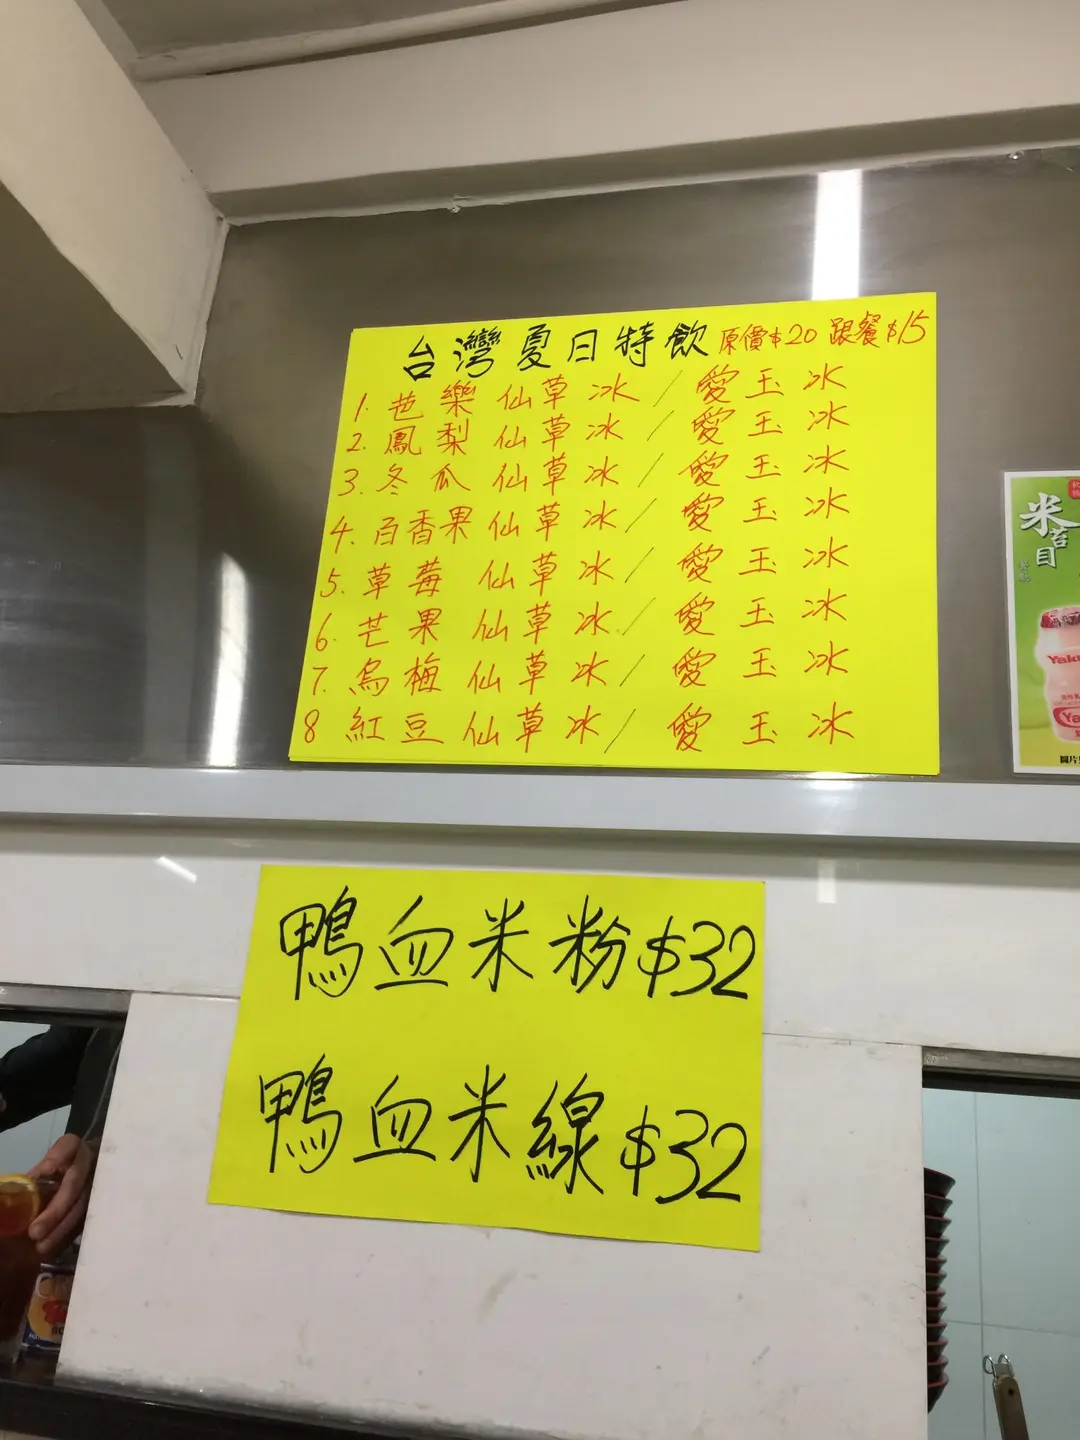 台灣夏日特飲 原價$20 跟餐$15
1. 芭樂仙草冰/愛玉冰
2. 鳳梨仙草冰/愛玉冰
3. 冬瓜仙草冰/愛玉冰
4. 百香果仙草冰/愛玉冰
5. 草莓仙草冰/愛玉冰
6. 芒果仙草冰/愛玉冰
7. 烏梅仙草冰/愛玉冰
8 紅豆仙草冰/愛玉冰
米苔目
圖片
鴨血米粉$32
鴨血米線$32